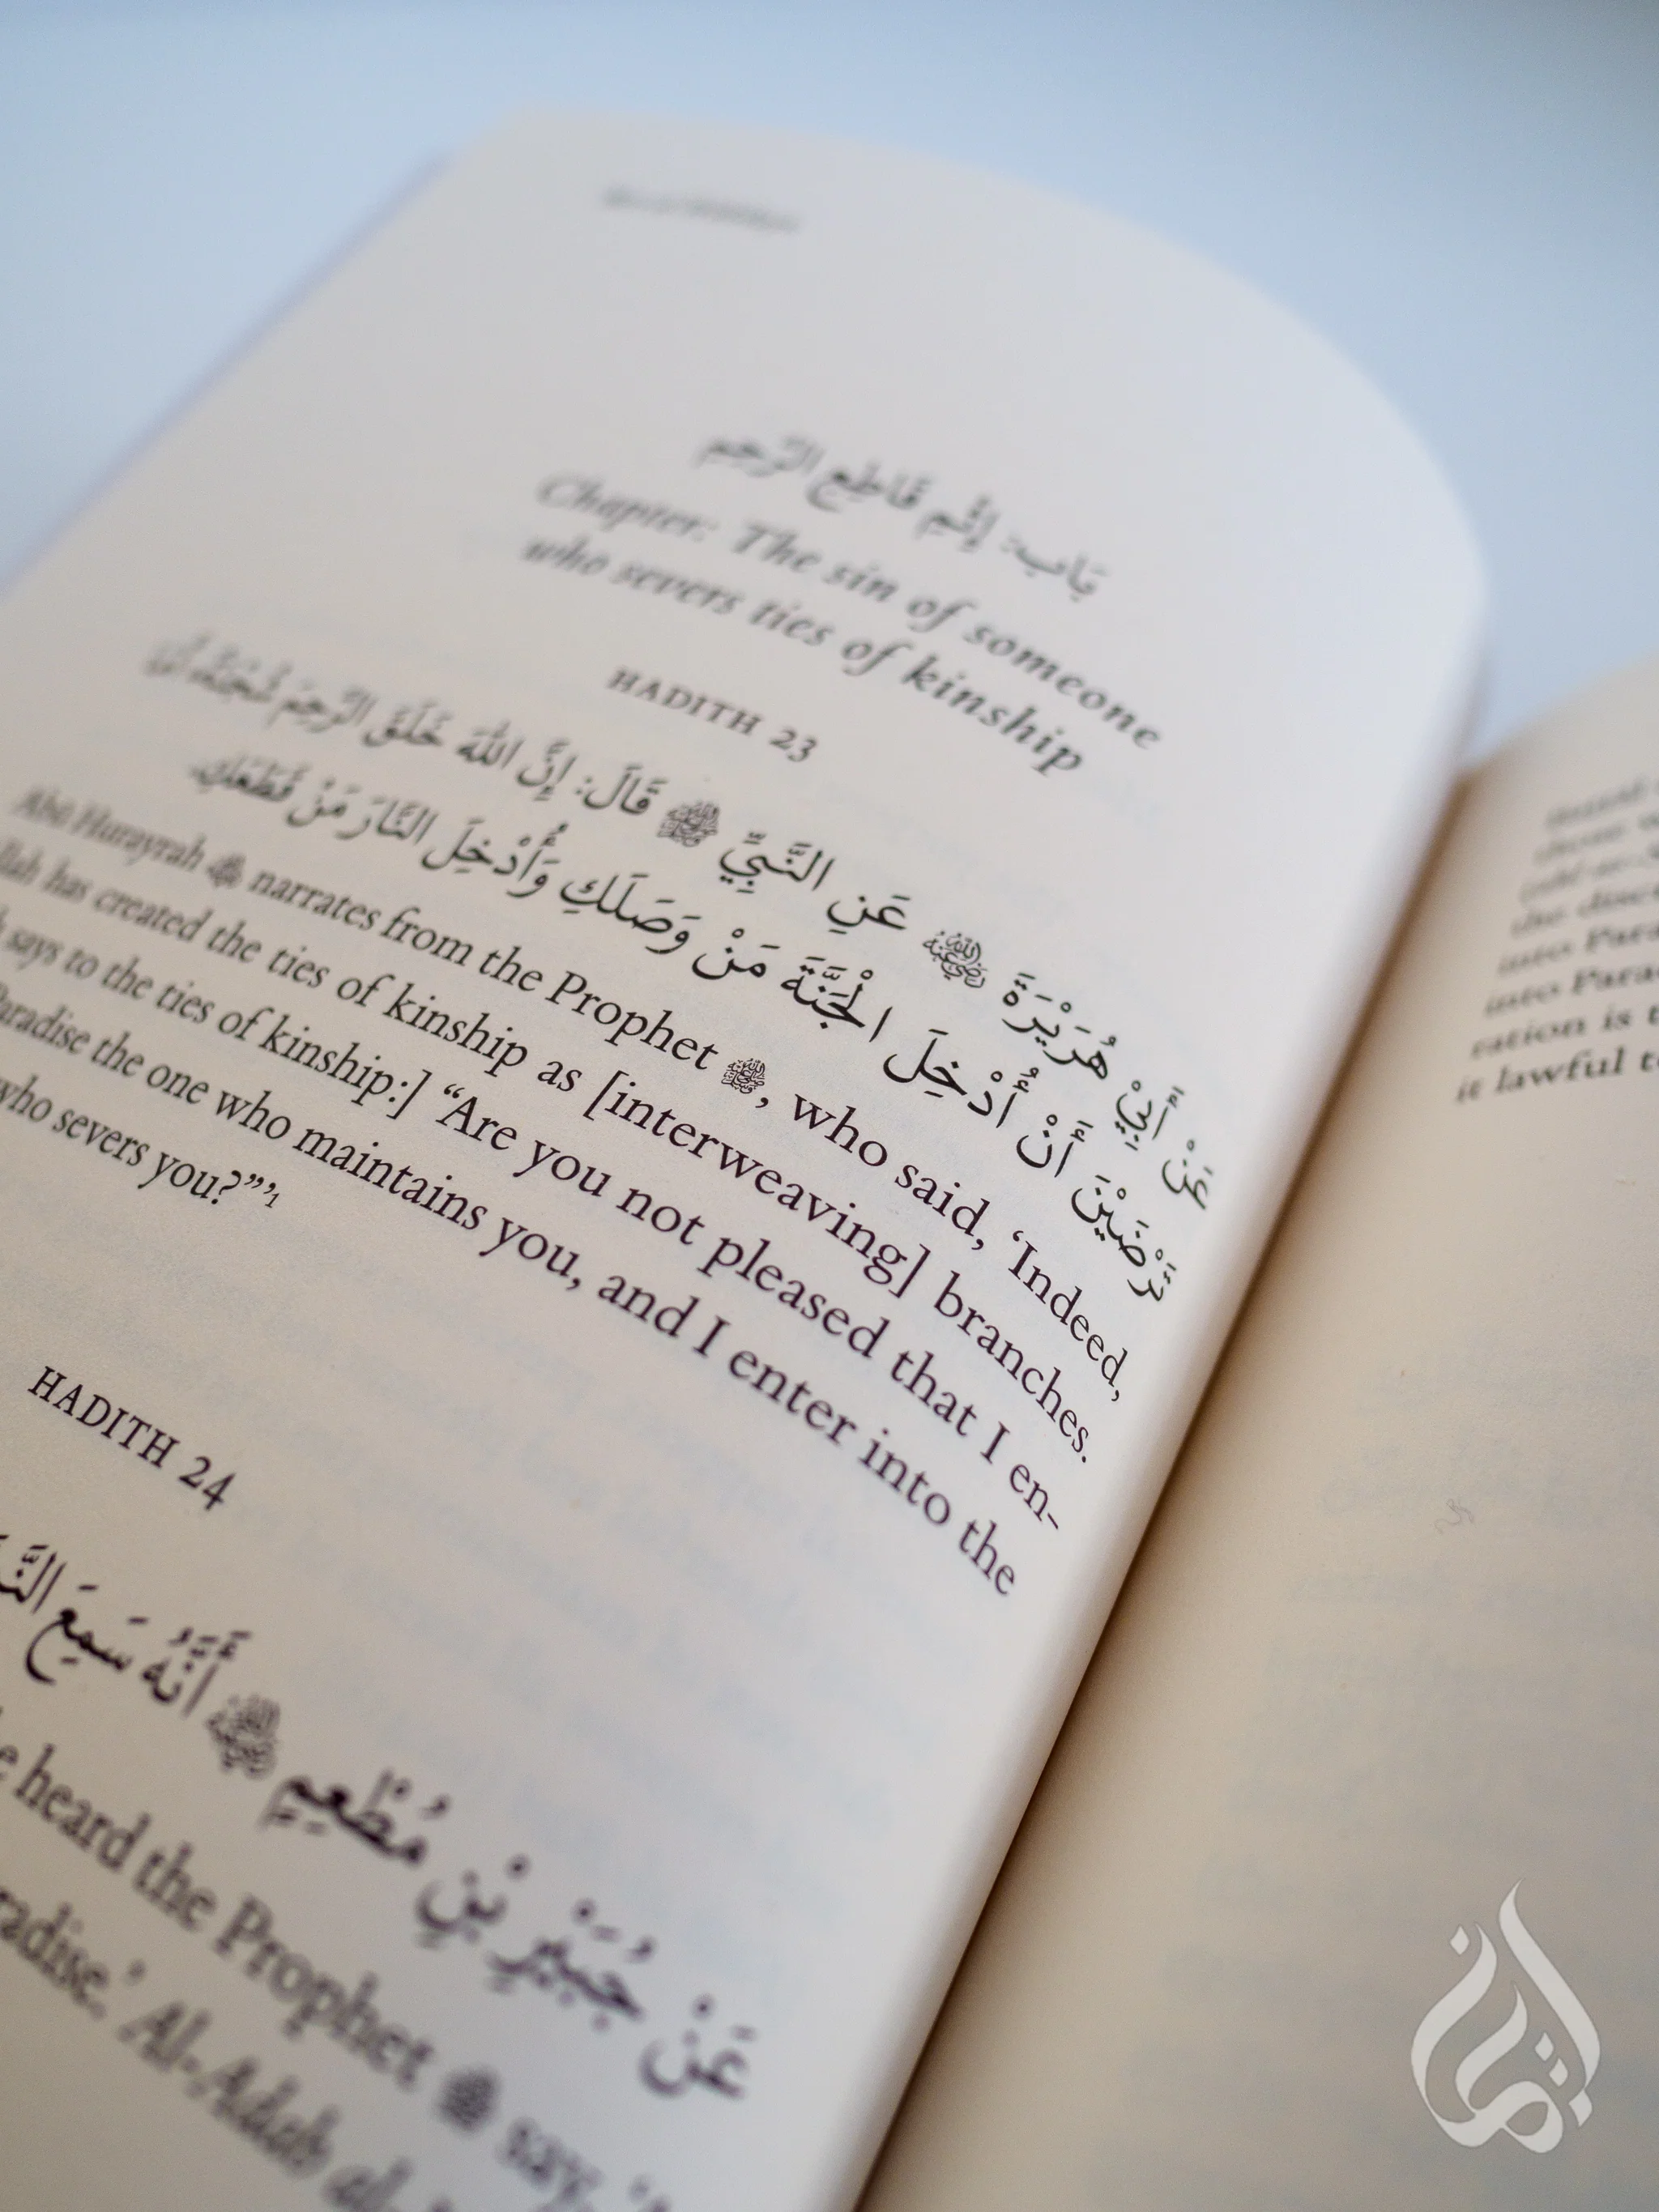 بَاب: إِثْمِ قَاطِعِ الرَّحِمِ
Chapter: The sin of someone
who severs ties of kinship
HADITH 23
عَنْ أَبِيْ هُرَيْرَةَ رضي الله عنه عَنِ النَّبِيِّ ﷺ قَالَ: إِنَّ اللهَ خَلَقَ الرَّحِمَ
تَرْضَيْنَ أَنْ أُدْخِلَ الْجَنَّةَ مَنْ وَصَلَكِ وَأُدْخِلَ النَّارَ مَنْ قَطَعَكِ.
Abū Hurayrah narrates from the Prophet ﷺ, who said, ‘Indeed,
has created the ties of kinship as [interweaving] branches.
says to the ties of kinship:] “Are you not pleased that I en-
Paradise the one who maintains you, and I enter into the
who severs you?”’1
HADITH 24
عَنْ جُبَيْرِ بْنِ مُطْعِمٍ أَنَّهُ سَمِعَ
heard the Prophet ﷺ say,
Al-Adab
into Para
into Para
ration is t
it lawful t